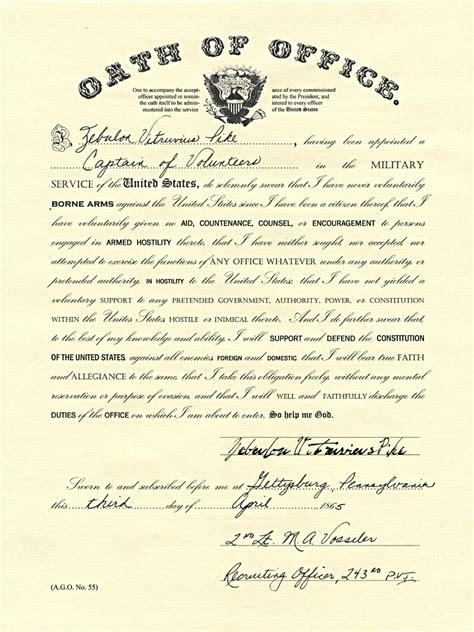 OATH OF OFFICE.
One to accompany the accept-
officer appointed or nomin-
the oath itself to be admin-
istered into the service
ance of every commissioned
ated by the President, and
istered to every officer
of the United States
I, Zebulon Vitruvius Pike, having been appointed a
Captain of Volunteers in the MILITARY
SERVICE of the United States, do solemnly swear that I have never voluntarily
BORNE ARMS against the United States since I have been a citizen thereof, that I
have voluntarily given no AID, COUNTENANCE, COUNSEL, or ENCOURAGEMENT to persons
engaged in ARMED HOSTILITY thereto, that I have neither sought, nor accepted, nor
attempted to exercise the functions of ANY OFFICE WHATEVER under any authority, or
pretended authority, IN HOSTILITY to the United States; that I have not yielded a
voluntary SUPPORT to any PRETENDED GOVERNMENT, AUTHORITY, POWER, or CONSTITUTION
within the United States HOSTILE or INIMICAL thereto. And I do further swear that,
to the best of my knowledge and ability, I will SUPPORT and DEFEND the CONSTITUTION
OF THE UNITED STATES, against all enemies FOREIGN and DOMESTIC, that I will bear true FAITH
and ALLEGIANCE to the same, that I take this obligation freely, without any mental
reservation or purpose of evasion, and that I will WELL and FAITHFULLY discharge the
DUTIES of the OFFICE on which I am about to enter. So help me God.
Zebulon Vitruvius Pike
Sworn to and subscribed before me at Gettysburg, Pennsylvania
this third day of April 1865
2nd Lt. M A Vosseler
Recruiting Officer, 243rd P.V.I.
(A.G.O. No. 55)